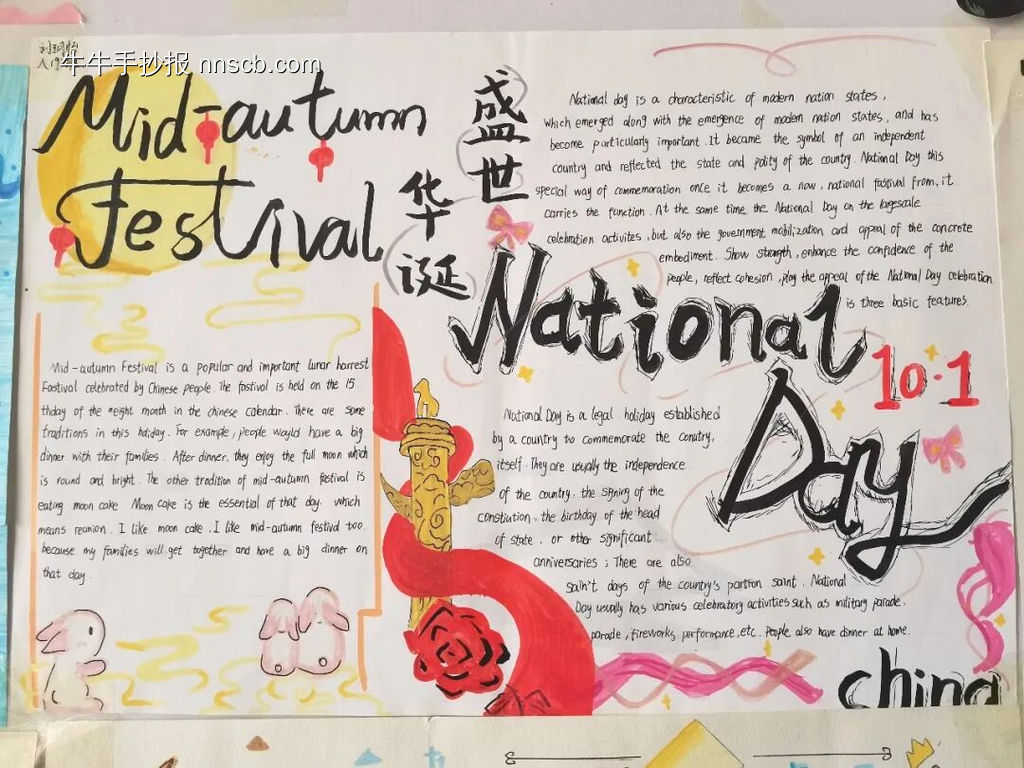 牛牛手抄报 nnscb.com
Mid-autumn
Festival
盛世
华诞
National day is a characteristic of modern nation states,
which emerged along with the emergence of modern nation states, and has
become particularly important. It became the symbol of an independent
country and reflected the state and polity of the country. National Day this
special way of commemoration once it becomes a now, national fastival from, it
carries the function. At the same time the National Day on the largescale
celebration activites, but also the government mobilization, and appeal of the concrete
embodiment. Show strength, enhance the confidence of the
people, reflect cohesion, play the appeal of the National Day celebration
is three basic features.
National
10.1
Day
Mid-autumn Festival is a popular and important lunar harrest
Fastival celebrated by Chinese people. The fastival is held on the 15
thday of the eight month in the chinese calendar. There are some
traditions in this holiday. For example, people would have a big
dinner with their families. After dinner, they enjoy the full moon which
is round and bright. The other tradition of mid-autumn festival is
eating moon cake Moon cake is the essential of that day. which
means reunion. I like moon cake. I like mid-autumn festival too.
because my families will get together and have a big dinner on
that day.
National Day is a legal holiday established
by a country to commemorate the conutry,
itself. They are usually the independence
of the country, the signing of the
constiution, the birthday of the head
of state, or other significant
anniversaries; There are also
sain't days of the country's partron saint. National
Day usually has various celebratory activities such as military parade.
parade, fireworks performance, etc. People also have dinner at home.
china